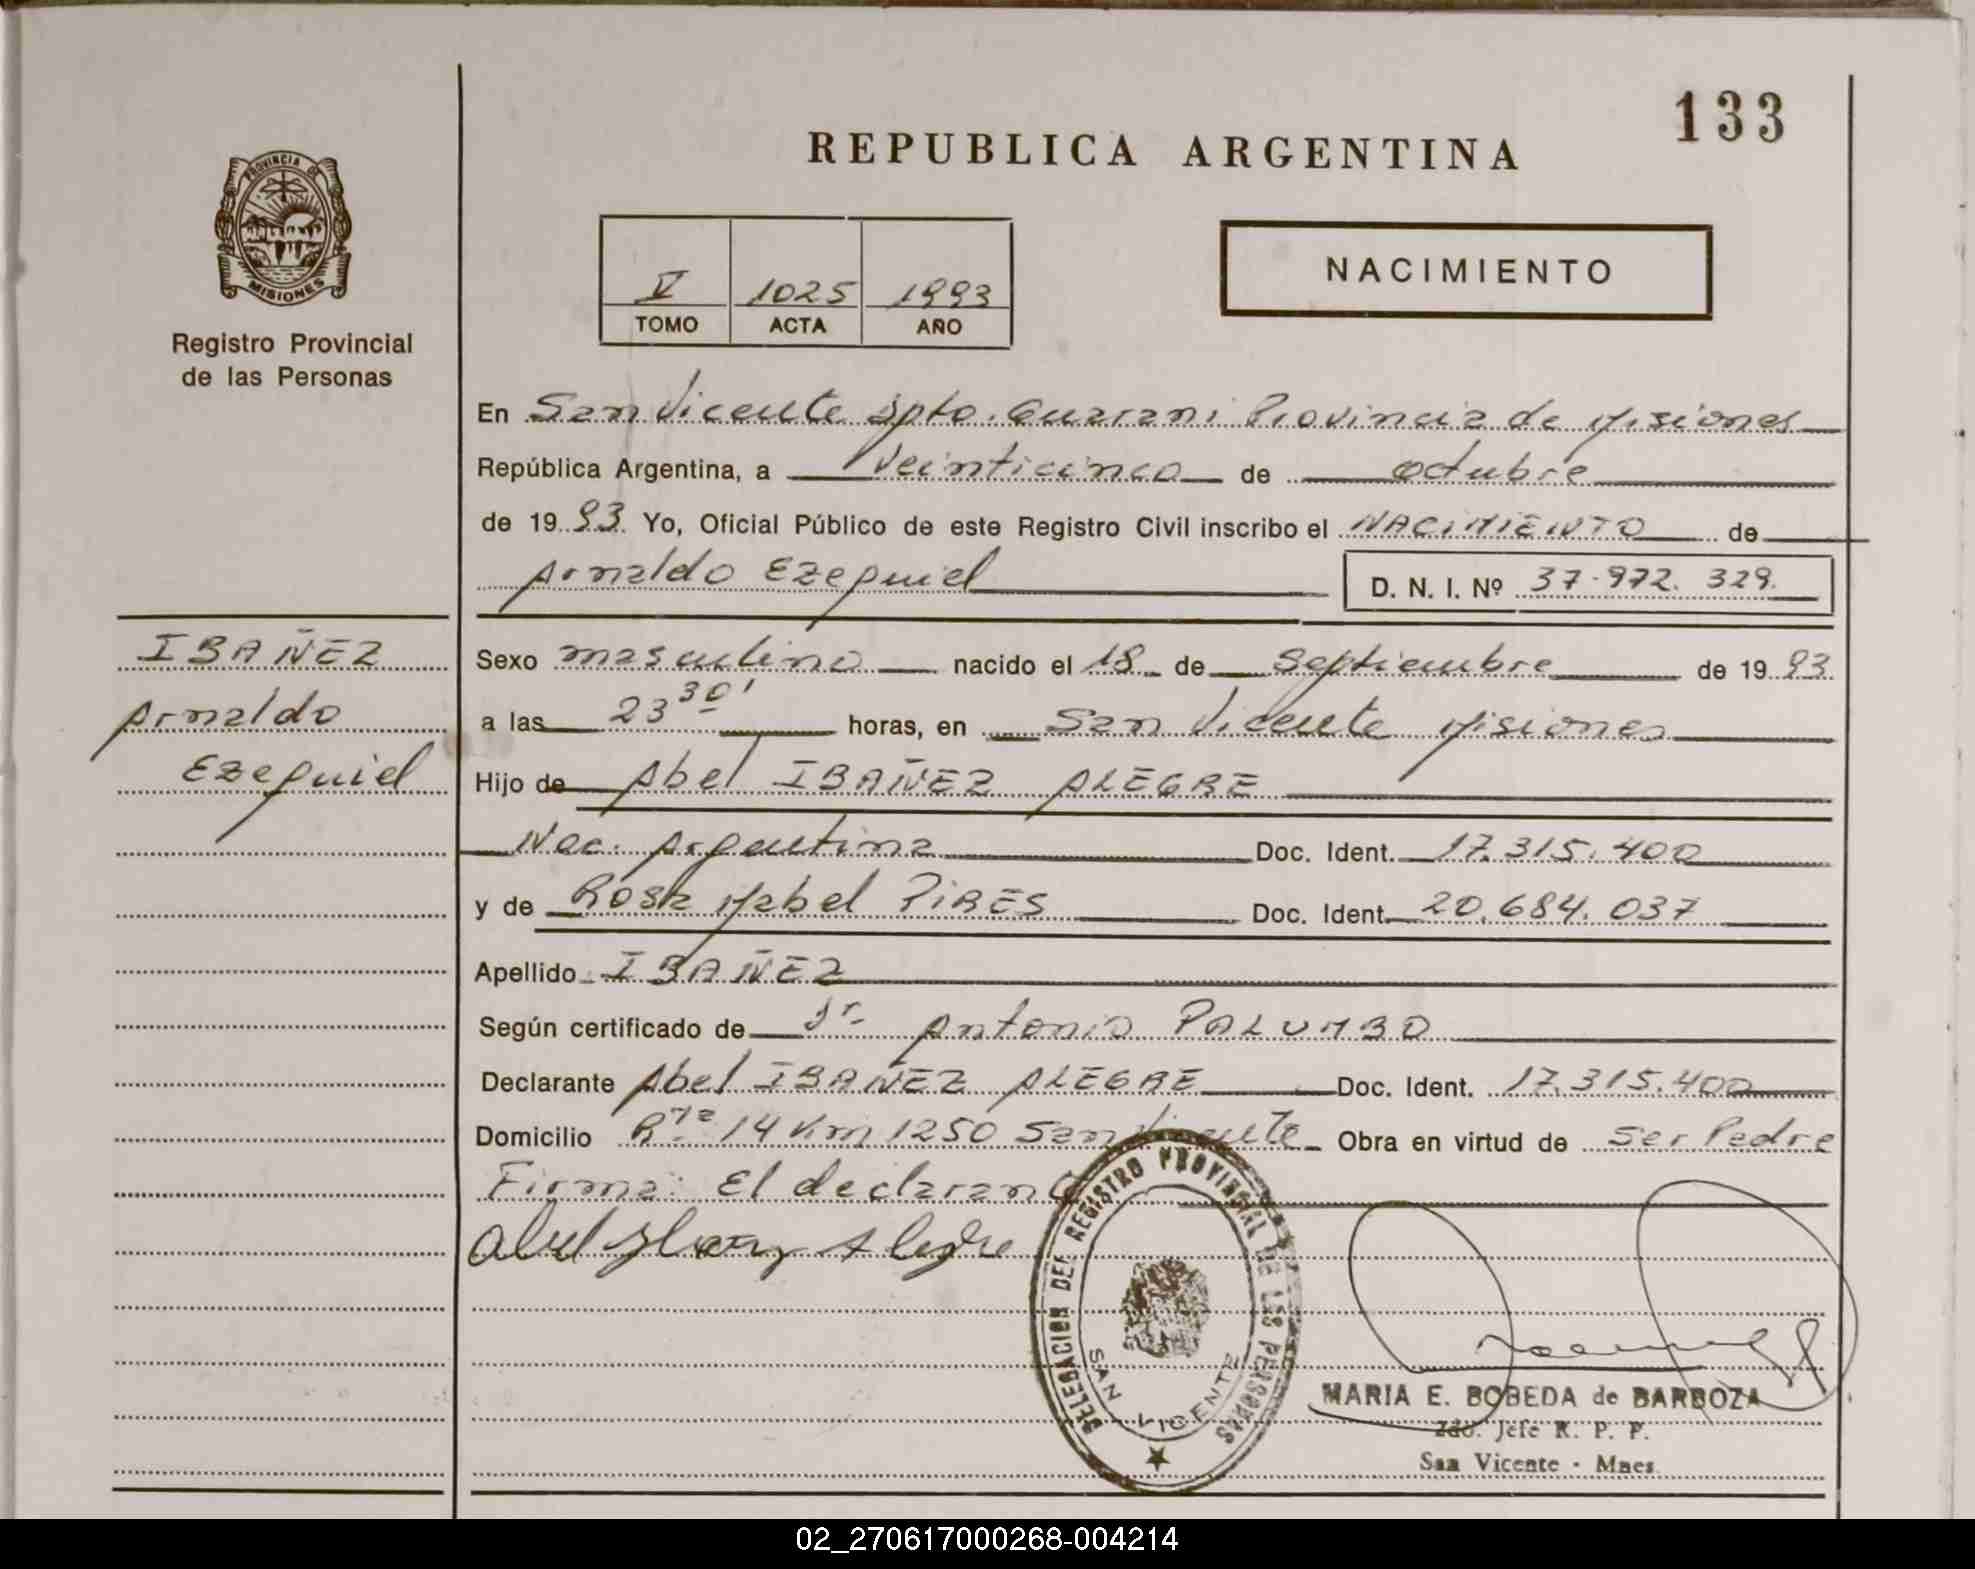 133
REPUBLICA ARGENTINA
PROVINCIA DE
MISIONES
Registro Provincial
de las Personas
V 1025 1993
TOMO ACTA AÑO
NACIMIENTO
En San Vicente Dpto. Guarani Provincia de Misiones
República Argentina, a Veinticinco de octubre
de 1993 Yo, Oficial Público de este Registro Civil inscribo el NACIMIENTO de
Arnaldo Ezequiel D. N. I. Nº 37.972.329.
IBAÑEZ
Arnaldo
Ezequiel
Sexo masculino nacido el 18 de Septiembre de 1993
a las 23 30' horas, en San Vicente Misiones
Hijo de Abel IBAÑEZ ALEGRE
Nac. Argentina Doc. Ident. 17.315.400
y de Rosa Mabel PIRES Doc. Ident. 20.684.037
Apellido IBAÑEZ
Según certificado de Dr. Antonio PALUMBO
Declarante Abel IBAÑEZ ALEGRE Doc. Ident. 17.315.400
Domicilio Rta 14 Km 1250 San Vicente Obra en virtud de Ser Padre
Firma: El declarant
Abel Ibañez Alegre
DELEGACION DEL REGISTRO PROVINCIAL DE LAS PERSONAS
SAN VICENTE
MARIA E. BOBEDA de BARBOZA
2do. Jefe R. P. P.
San Vicente - Mnes.
02_270617000268-004214